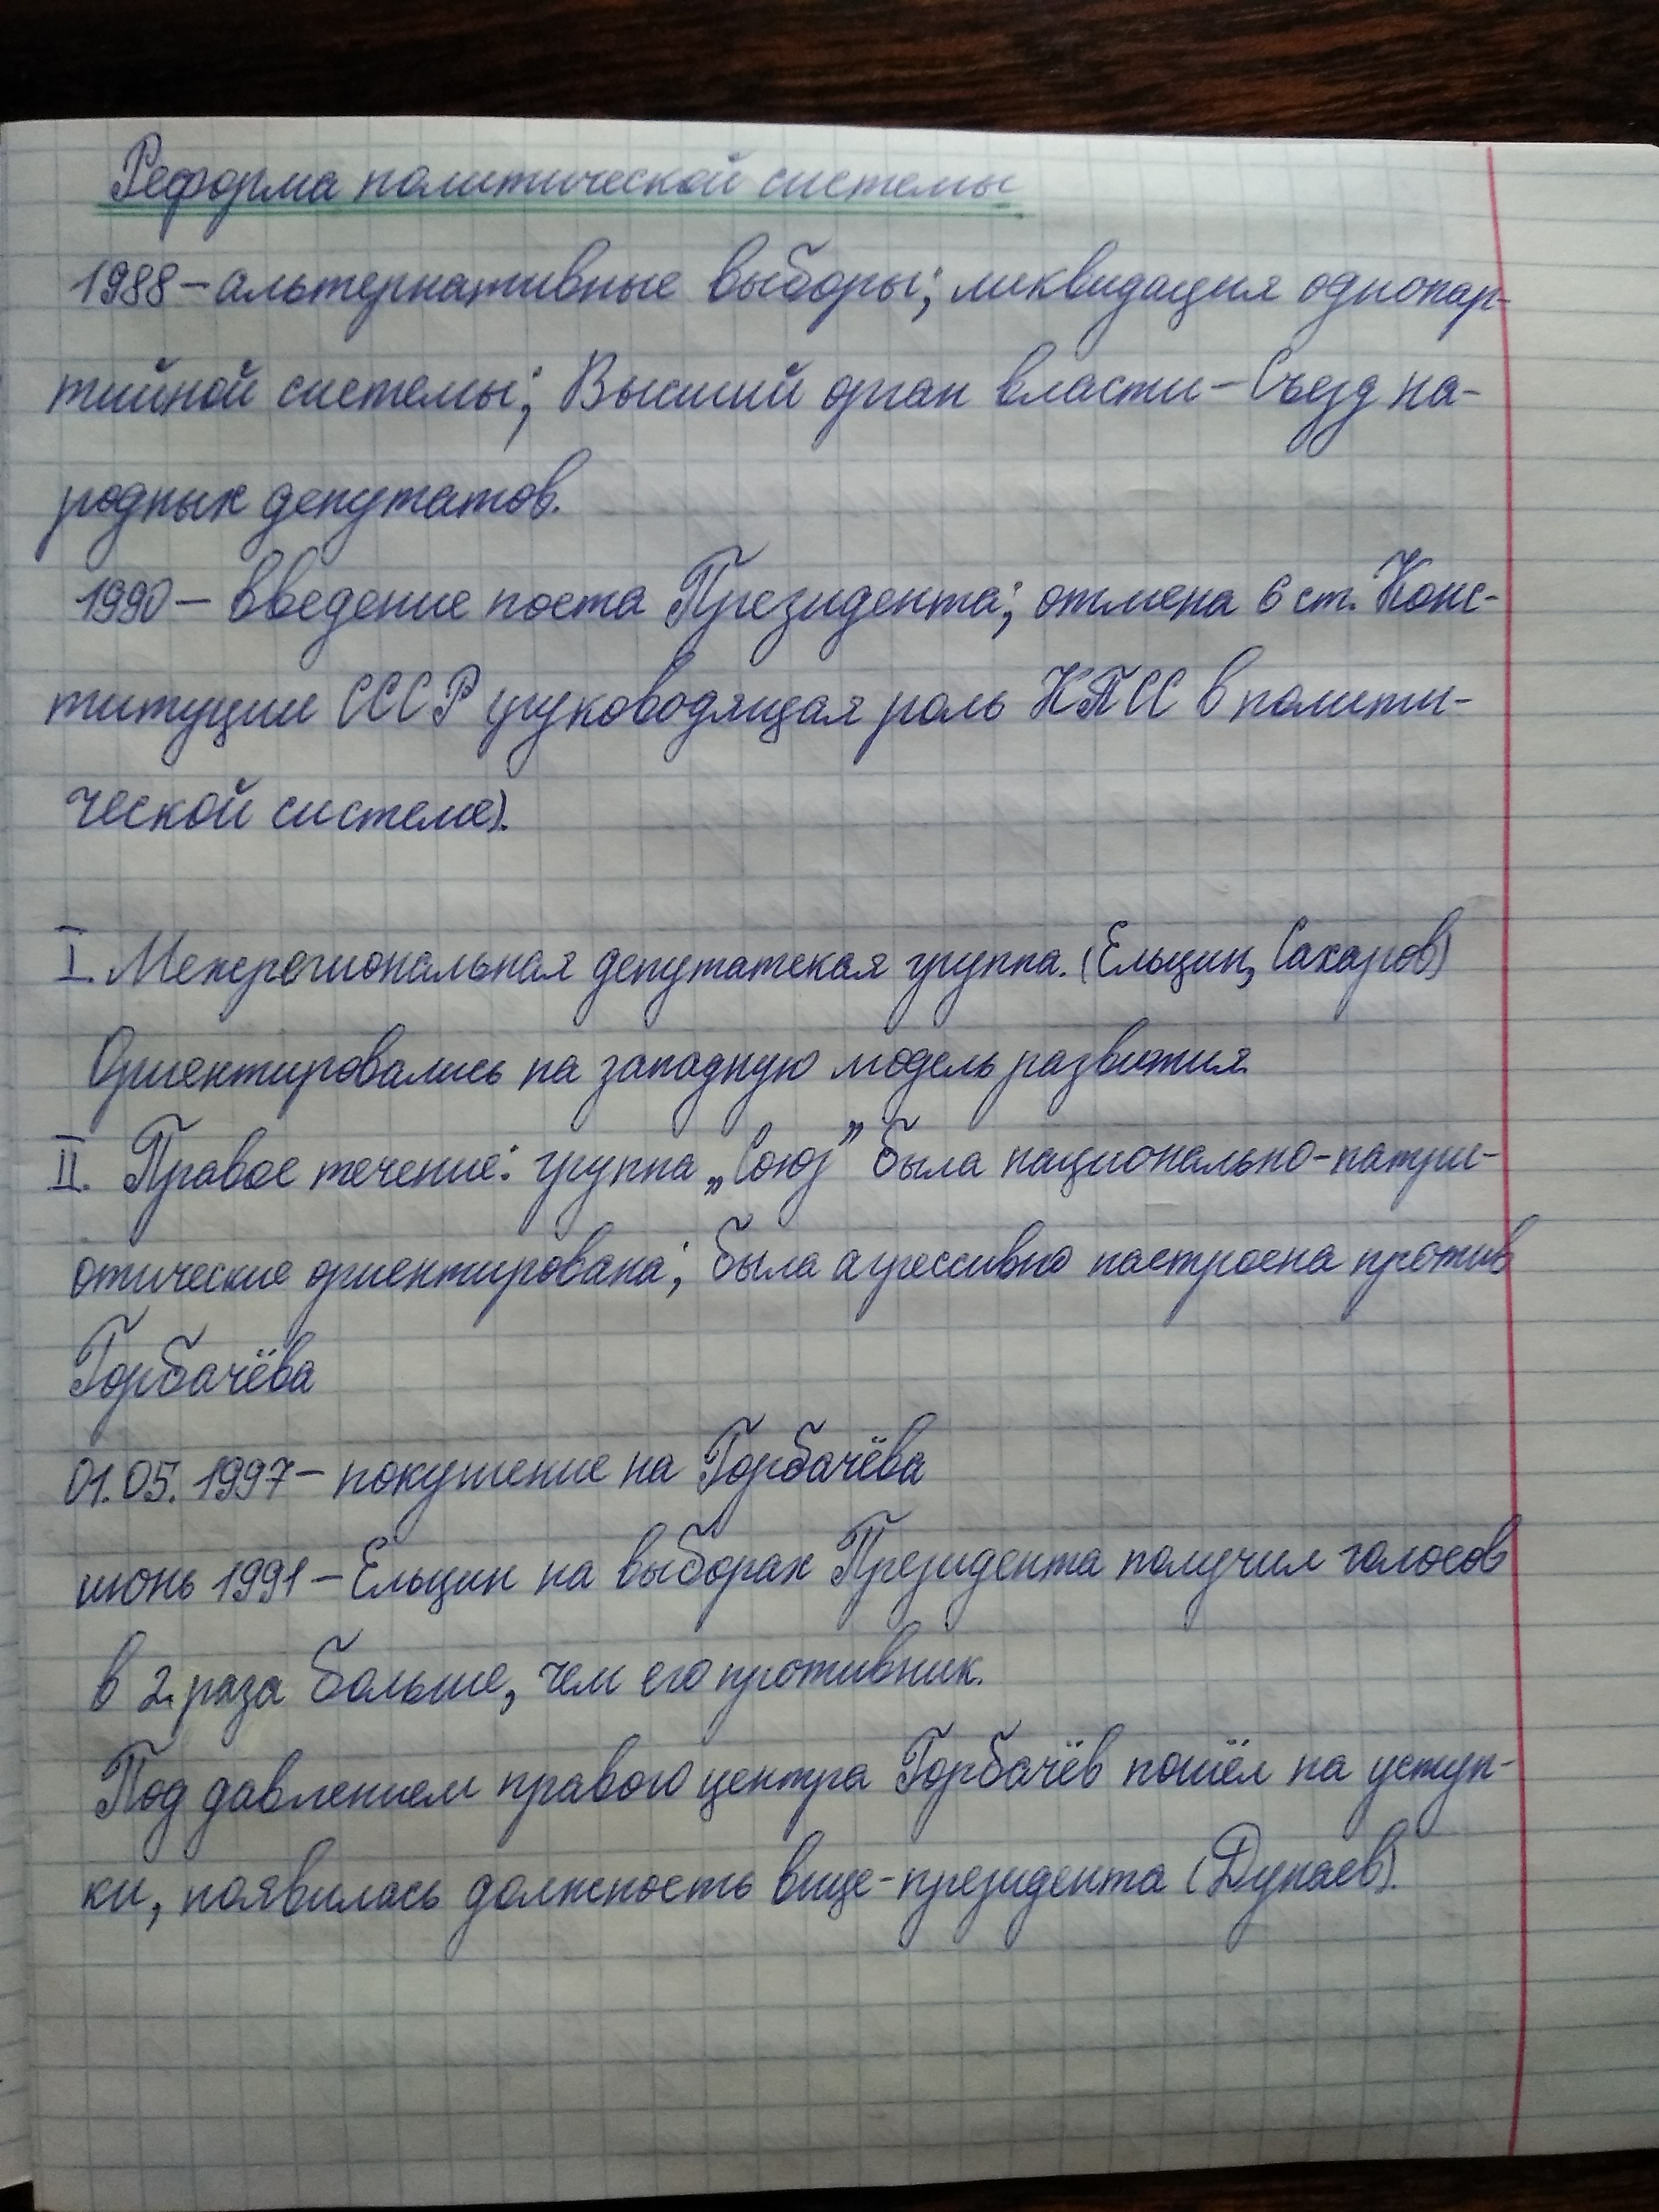 Реформа политической системы
1988 – альтернативные выборы; ликвидация однопар-
тийной системы; Высший орган власти – Съезд на-
родных депутатов.
1990 – введение поста Президента; отмена 6 ст. Конс-
титуции СССР (руководящая роль КПСС в полити-
ческой системе).
I. Межрегиональная депутатская группа. (Ельцин, Сахаров)
Ориентировались на западную модель развития.
II. Правое течение: группа „Союз” была национально-патри-
отические ориентирована; была агрессивно настроена против
Горбачёва
01.05.1997 – покушение на Горбачёва
июнь 1991 – Ельцин на выборах Президента получил голосов
в 2 раза больше, чем его противник.
Под давлением правого центра Горбачёв пошёл на уступ-
ки, появилась должность вице-президента (Дунаев).